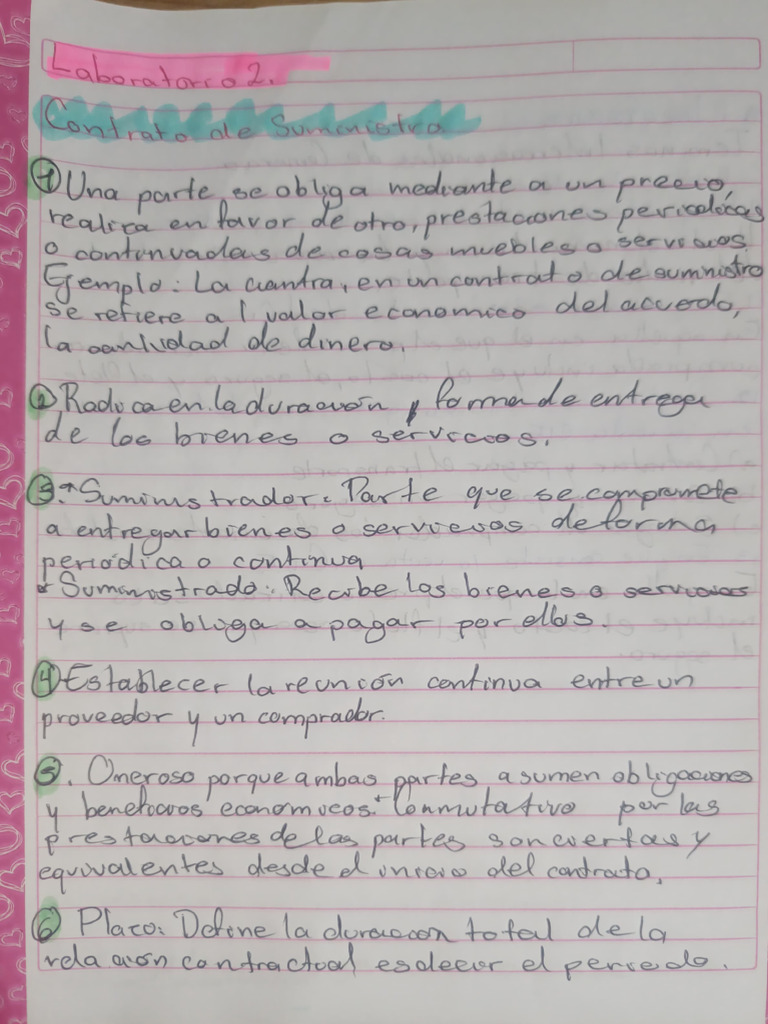 Laboratorio 2.
Contrato de Suministro
① Una parte se obliga mediante a un precio,
realica en favor de otro, prestaciones periodicas
o continuadas de cosas muebles o servicios
Ejemplo: La cuantra, en un contrato de suministro
se refiere al valor economico del acuerdo,
la cantidad de dinero.
② Radica en la duración y forma de entrega
de los bienes o servicios.
③ * Suministrador: Parte que se compromete
a entregar bienes o servicios de forma
periódica o continua
* Suministrado: Recibe los bienes o servicios
y se obliga a pagar por ellos.
④ Establecer la reunción continua entre un
proveedor y un comprador.
⑤. Oneroso porque ambas partes asumen obligaciones
y beneficios economicos + Conmutativo por las
prestaciones de las partes son ciertas y
equivalentes desde el inicio del contrato.
⑥ Placo: Define la duracion total de la
relación contractual es decir el periodo.